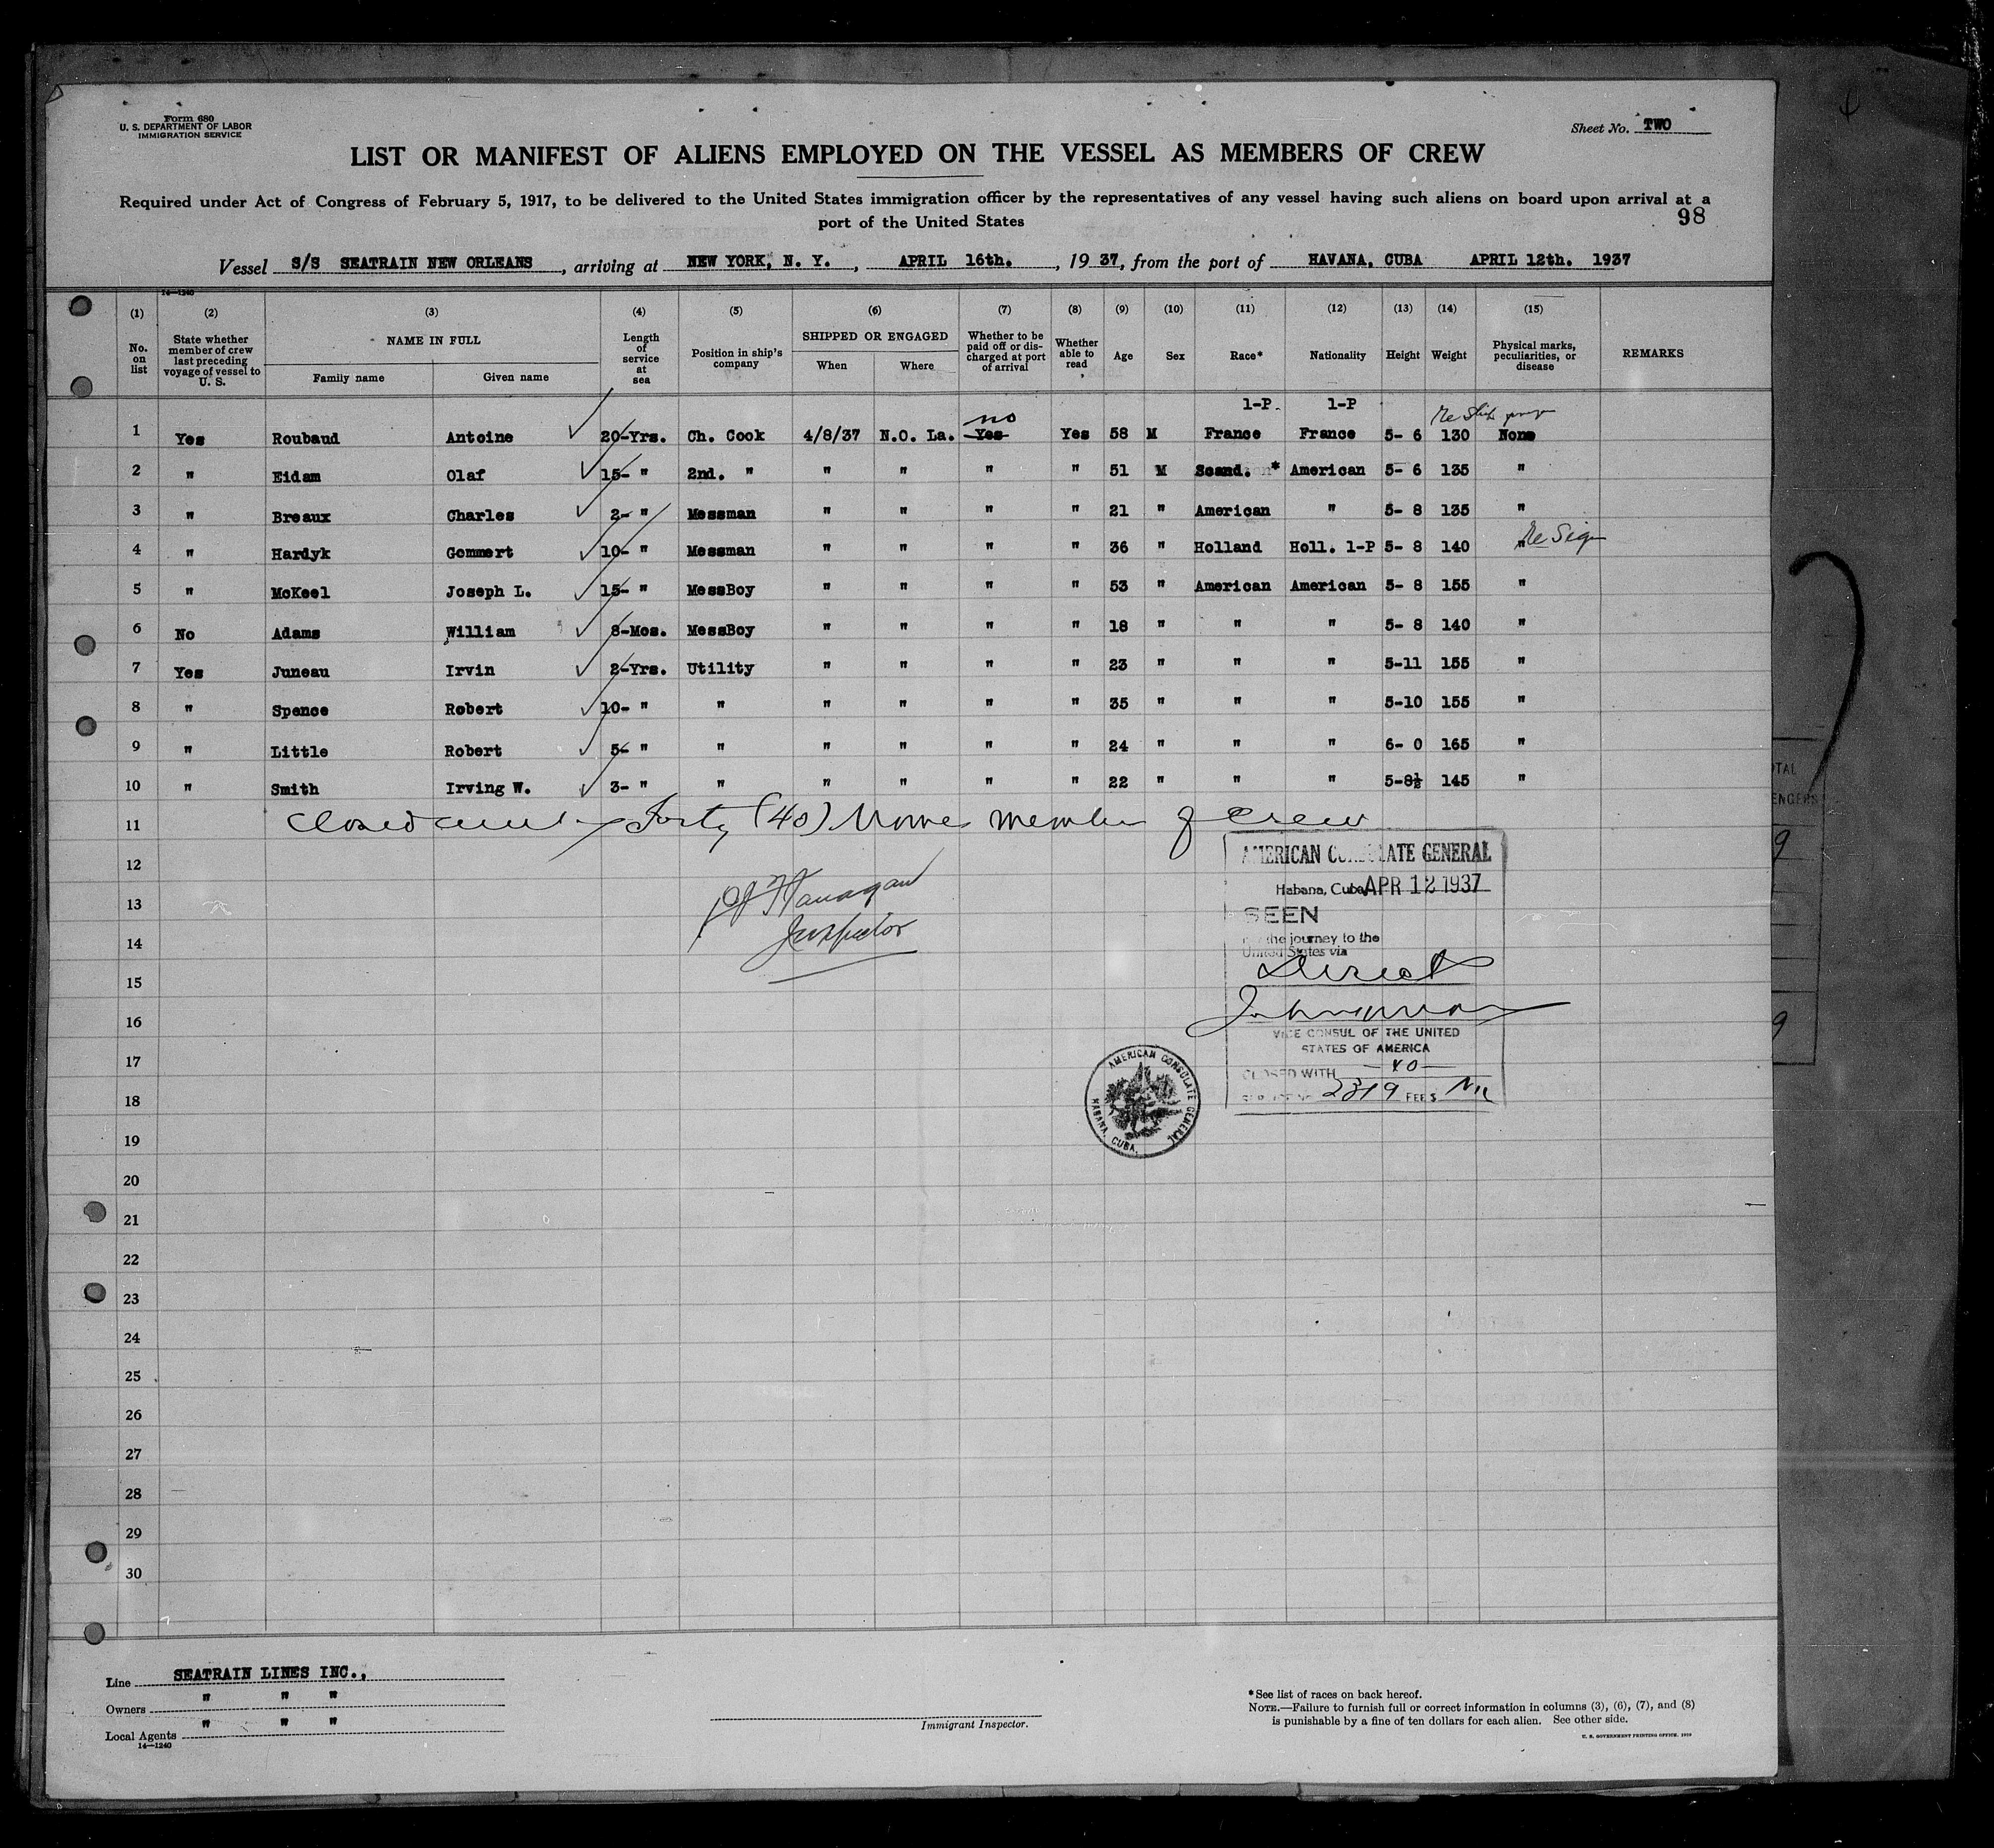 Form 680
U. S. DEPARTMENT OF LABOR
IMMIGRATION SERVICE
Sheet No. TWO
LIST OR MANIFEST OF ALIENS EMPLOYED ON THE VESSEL AS MEMBERS OF CREW
Required under Act of Congress of February 5, 1917, to be delivered to the United States immigration officer by the representatives of any vessel having such aliens on board upon arrival at a
port of the United States
98
Vessel S/S SEATRAIN NEW ORLEANS, arriving at NEW YORK, N. Y., APRIL 16th., 1937, from the port of HAVANA, CUBA APRIL 12th. 1937
14—1240
(1) (2) (3) (4) (5) (6) (7) (8) (9) (10) (11) (12) (13) (14) (15)
No. on list
State whether member of crew last preceding voyage of vessel to U. S.
NAME IN FULL
Family name Given name
Length of service at sea
Position in ship's company
SHIPPED OR ENGAGED
When Where
Whether to be paid off or discharged at port of arrival
Whether able to read
Age Sex Race* Nationality Height Weight
Physical marks, peculiarities, or disease
REMARKS
no 1-P. 1-P
1 Yes Roubaud Antoine 20-Yrs. Ch. Cook 4/8/37 N.O. La. Yes Yes 58 M France France 5- 6 130 None
2 " Eidam Olaf 15- " 2nd. " " " " " 51 M Scand. * American 5- 6 135 "
3 " Breaux Charles 2- " Messman " " " " 21 " American " 5- 8 135 "
4 " Hardyk Gommert 10- " Messman " " " " 36 " Holland Holl. 1-P 5- 8 140 " Re Sign
5 " McKeel Joseph L. 15- " MessBoy " " " " 53 " American American 5- 8 155 "
6 No Adams William 8-Mos. MessBoy " " " " 18 " " " 5- 8 140 "
7 Yes Juneau Irvin 2-Yrs. Utility " " " " 23 " " " 5-11 155 "
8 " Spence Robert 10- " " " " " " 35 " " " 5-10 155 "
9 " Little Robert 5- " " " " " " 24 " " " 6- 0 165 "
10 " Smith Irving W. 3- " " " " " " 22 " " " 5-8½ 145 "
11 Closed Forty (40) members of crew
12
13
14
15
16
17
18
19
20
21
22
23
24
25
26
27
28
29
30
Flanagan
Inspector
AMERICAN CONSULATE GENERAL
Habana, Cuba APR 12 1937
SEEN
the journey to the
United States via
Direct
VICE CONSUL OF THE UNITED
STATES OF AMERICA
CLOSED WITH 40
2319 FEES Nil
AMERICAN CONSULATE GENERAL
HABANA, CUBA.
Line SEATRAIN LINES INC.,
Owners " " "
Local Agents " " "
14—1240
Immigrant Inspector.
*See list of races on back hereof.
NOTE.—Failure to furnish full or correct information in columns (3), (6), (7), and (8)
is punishable by a fine of ten dollars for each alien. See other side.
U. S. GOVERNMENT PRINTING OFFICE